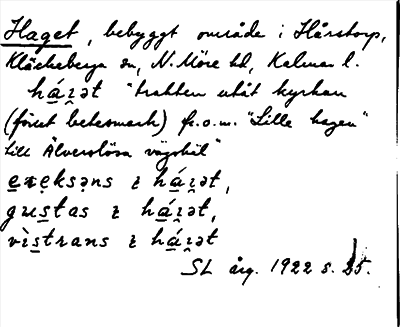 Haget, bebyggt område i Hårstorp,
Kläckeberga sn, N. Möre hd, Kalmar l.
há̱ɪ̯ət "trakten utåt kyrkan
(förut betesmark) fr.o.m. "Lille hagen"
till Ålverslösa vägskäl"
e̱re̱ksəns ɪ há̱ɪ̯ət,
gus̱tas ɪ há̱ɪ̯ət,
vìs̱trans ɪ há̱ɪ̯ət
SL årg. 1922 s. 25.